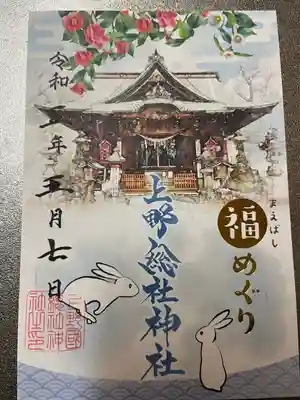 まえばし
福めぐり
上野総社神社
令和五年五月七日